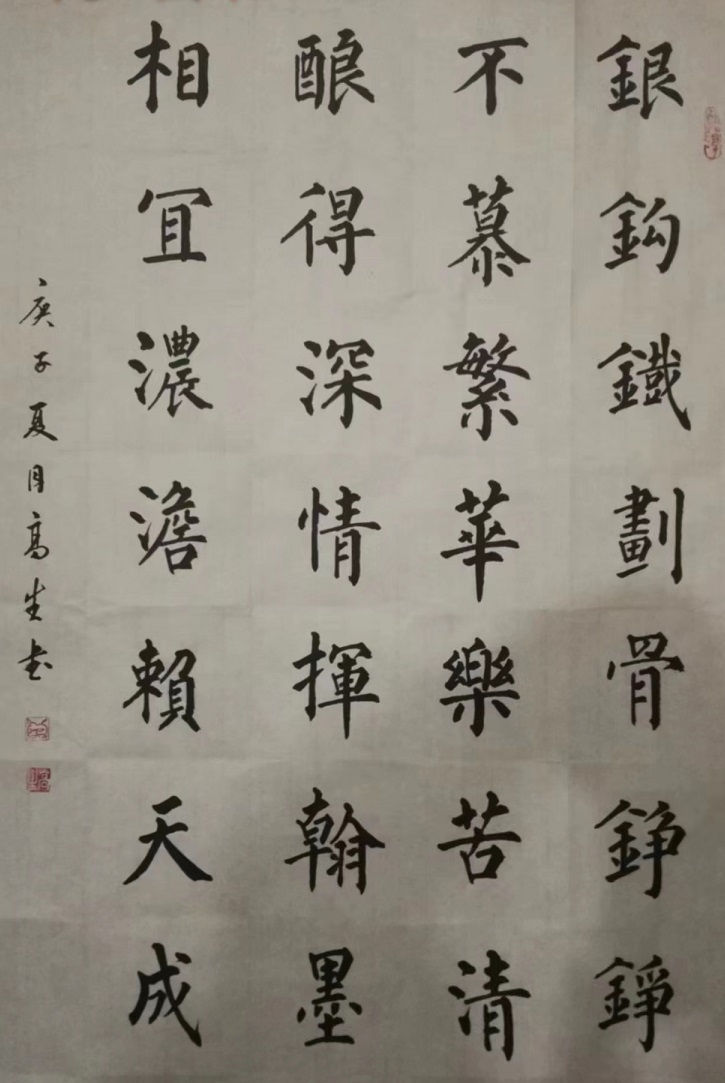 銀鈎鐵劃骨錚錚
不慕繁華樂苦清
酿得深情揮翰墨
相宜濃澹賴天成
庚子夏月高生书